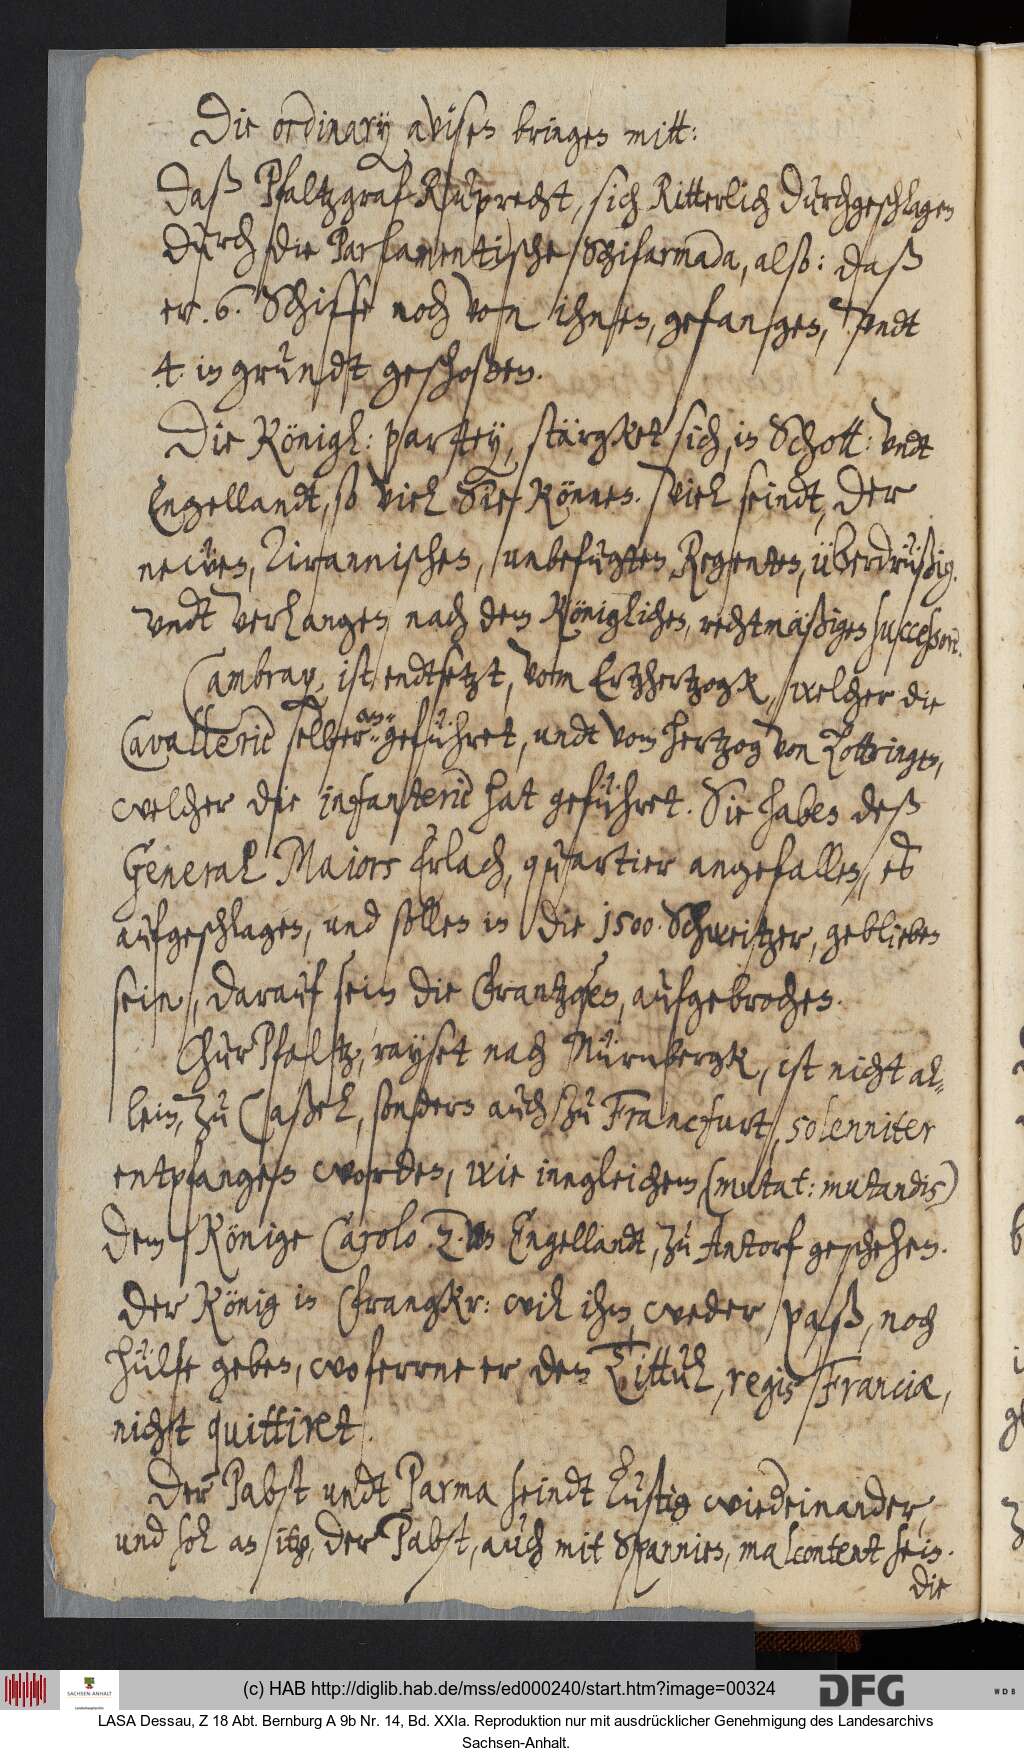 Die ordinarÿ avisen bringen mitt:
Daß Pfaltzgraf Ruprecht, sich Ritterlich durchgeschlagen
durch die Parlamentische Schifarmada, also: daß
er .6. Schiffe noch von ihnen, gefangen, undt
4. in grundt geschoßen.
Die Königl: partey, stärgket sich, in Schott: undt
Engellandt, so viel Sie können. Viel seindt, der
newen, Tirannischen, unbefugten Regenten, überdrüßig.
undt verlangen nach dem Königlichen, rechtmäßigen successore.
Cambray, ist endtsetzt, vom Ertzhertzogk, welcher die
Cavallerie selber an-geführet, undt vom hertzog von Lottringen,
welcher die infanterie hat geführet. Sie haben deß
General Majors Erlach, quartier angefallen, es
aufgeschlagen, und sollen in die 1500. Schweitzer, geblieben
sein, darauf sein die Frantzosen, aufgebrochen.
Chur Pfaltz, rayset nach Nürnbergk, ist nicht al-
lein, zu Caßel, sondern auch zu Francfurt, solenniter
entpfangen worden, wie inngleichem (mutat: mutandis)
dem Könige Carolo .2. in Engellandt, zu Antorf geschehen.
Der König in Frangkr: wil ihm weder paß, noch
hülfe geben, woferrne er den Tittul, regis Franciæ,
nicht quittiret.
Der Pabst undt Parma seindt lustig wiedereinander,
und sol an itzo, der Pabst, auch mit Spannien, malcontent sein.
die
(c) HAB http://diglib.hab.de/mss/ed000240/start.htm?image=00324
SACHSEN-ANHALT
DFG
WDB
LASA Dessau, Z 18 Abt. Bernburg A 9b Nr. 14, Bd. XXIa. Reproduktion nur mit ausdrücklicher Genehmigung des Landesarchivs
Sachsen-Anhalt.